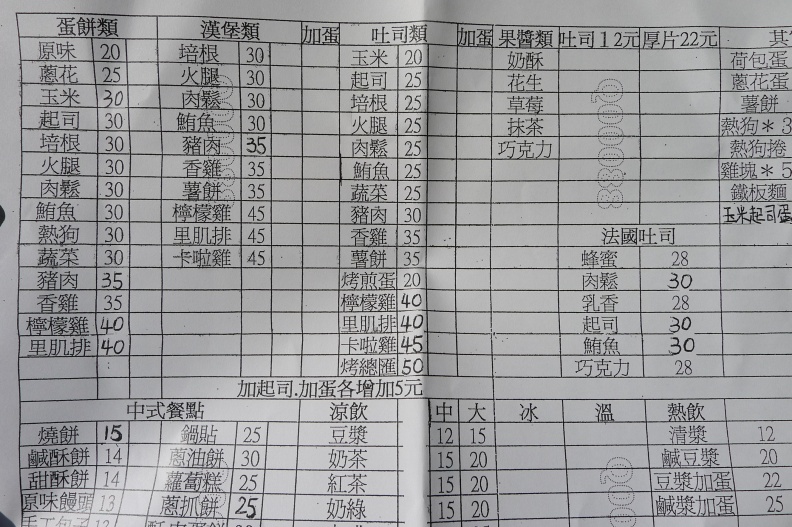 蛋餅類 漢堡類 加蛋 吐司類 加蛋 果醬類 吐司12元 厚片22元
原味 20 培根 30 玉米 20 奶酥 荷包蛋
蔥花 25 火腿 30 起司 25 花生 蔥花蛋
玉米 30 肉鬆 30 培根 25 草莓 薯餅
起司 30 鮪魚 30 火腿 25 抹茶 熱狗*3
培根 30 豬肉 35 肉鬆 25 巧克力 熱狗捲
火腿 30 香雞 35 鮪魚 25 雞塊*5
肉鬆 30 薯餅 35 蔬菜 25 鐵板麵
鮪魚 30 檸檬雞 45 豬肉 30 玉米起司蛋
熱狗 30 里肌排 45 香雞 35 法國吐司
蔬菜 30 卡啦雞 45 薯餅 35 蜂蜜 28
豬肉 35 烤煎蛋 20 肉鬆 30
香雞 35 檸檬雞 40 乳香 28
檸檬雞 40 里肌排 40 起司 30
里肌排 40 卡啦雞 45 鮪魚 30
烤總匯 50 巧克力 28
加起司.加蛋各增加5元
中式餐點 涼飲 中 大 冰 溫 熱飲
燒餅 15 鍋貼 25 豆漿 12 15 清漿 12
鹹酥餅 14 蔥油餅 30 奶茶 15 20 鹹豆漿 20
甜酥餅 14 蘿蔔糕 25 紅茶 15 20 豆漿加蛋 22
原味饅頭 13 蔥抓餅 25 奶綠 15 20 鹹漿加蛋 25